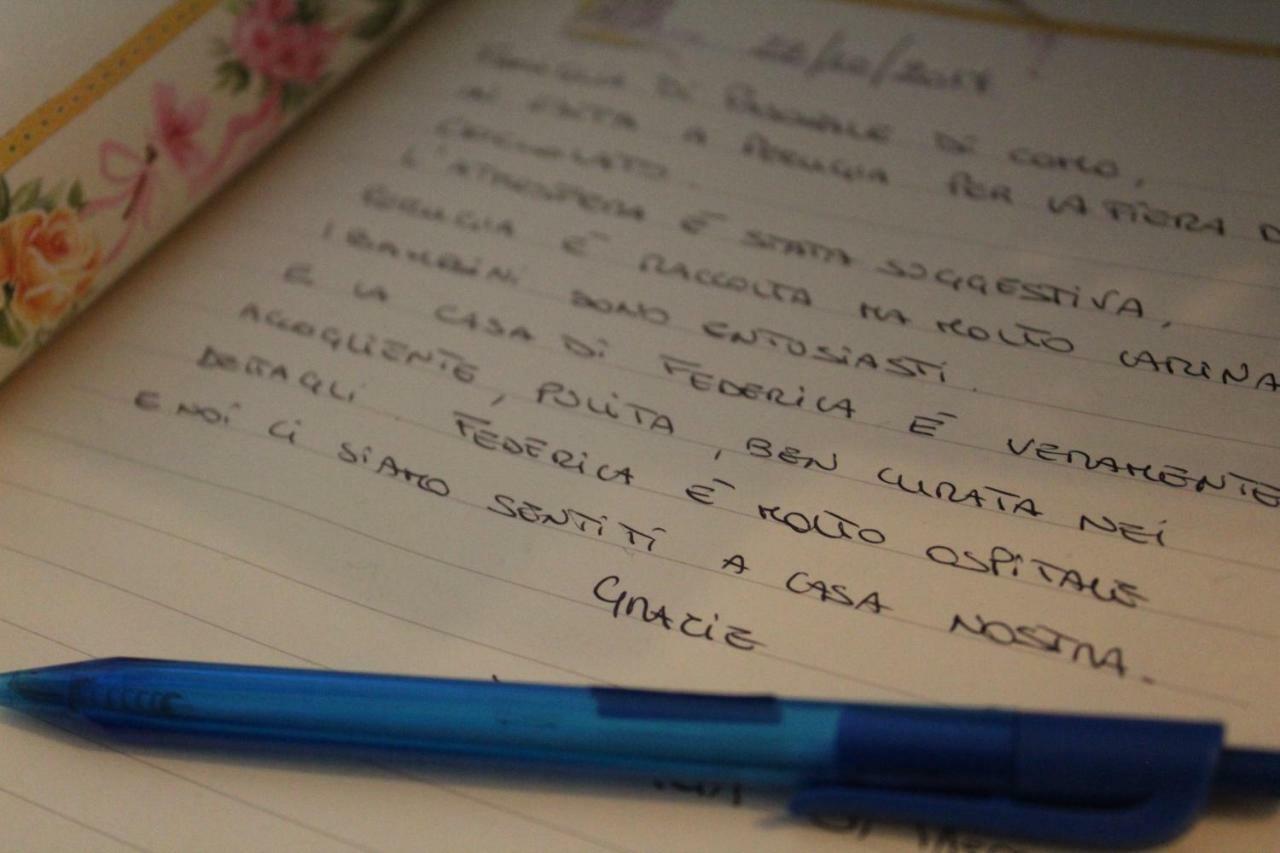 DI PASQUALE DI COMO,
IN GITA A PERUGIA PER LA FIERA D
CIOCCOLATO.
L'ATMOSFERA È STATA SUGGESTIVA,
PERUGIA È RACCOLTA MA MOLTO CARINA
I BAMBINI SONO ENTUSIASTI.
E LA CASA DI FEDERICA È VERAMENTE
ACCOGLIENTE, PULITA, BEN CURATA NEI
DETTAGLI. FEDERICA È MOLTO OSPITALE
E NOI CI SIAMO SENTITI A CASA NOSTRA.
GRAZIE